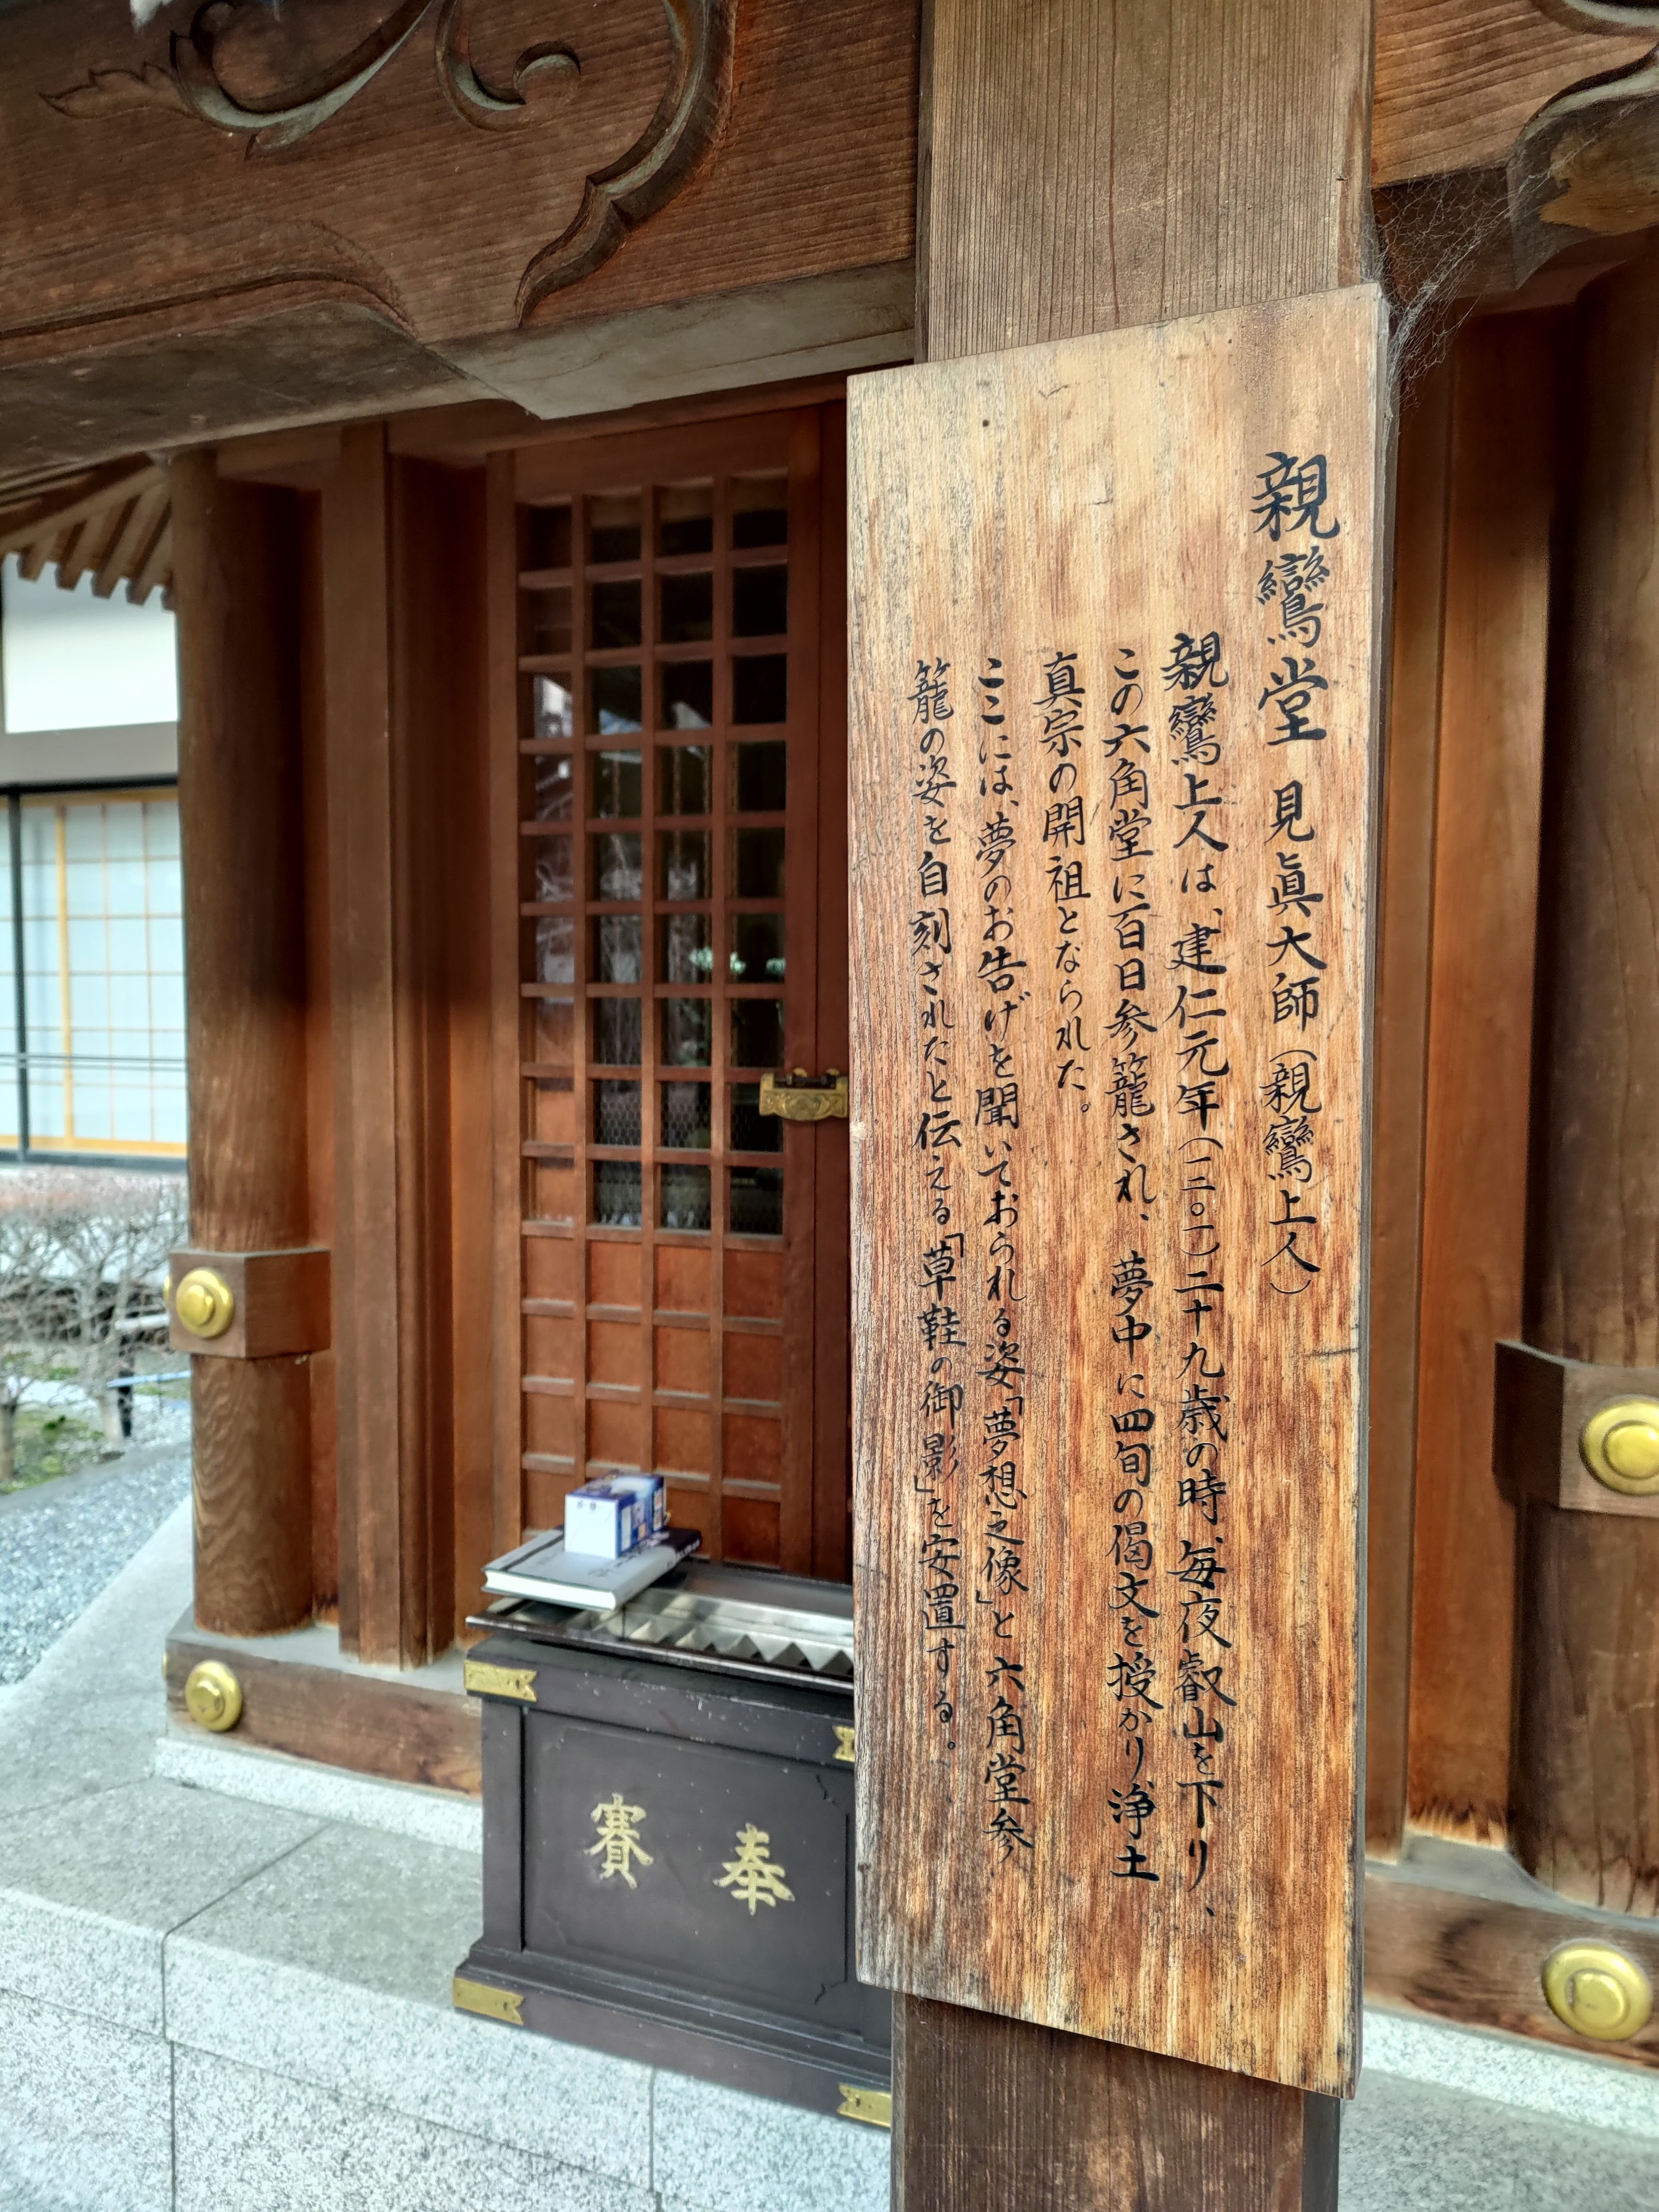 親鸞堂 見眞大師(親鸞上人)
親鸞上人は、建仁元年(一二〇一)二十九歳の時、毎夜叡山を下り、
この六角堂に百日参籠され、夢中に四旬の偈文を授かり浄土
真宗の開祖となられた。
ここには、夢のお告げを聞いておられる姿「夢想之像」と六角堂参
籠の姿を自刻されたと伝える「草鞋の御影」を安置する。
奉賽